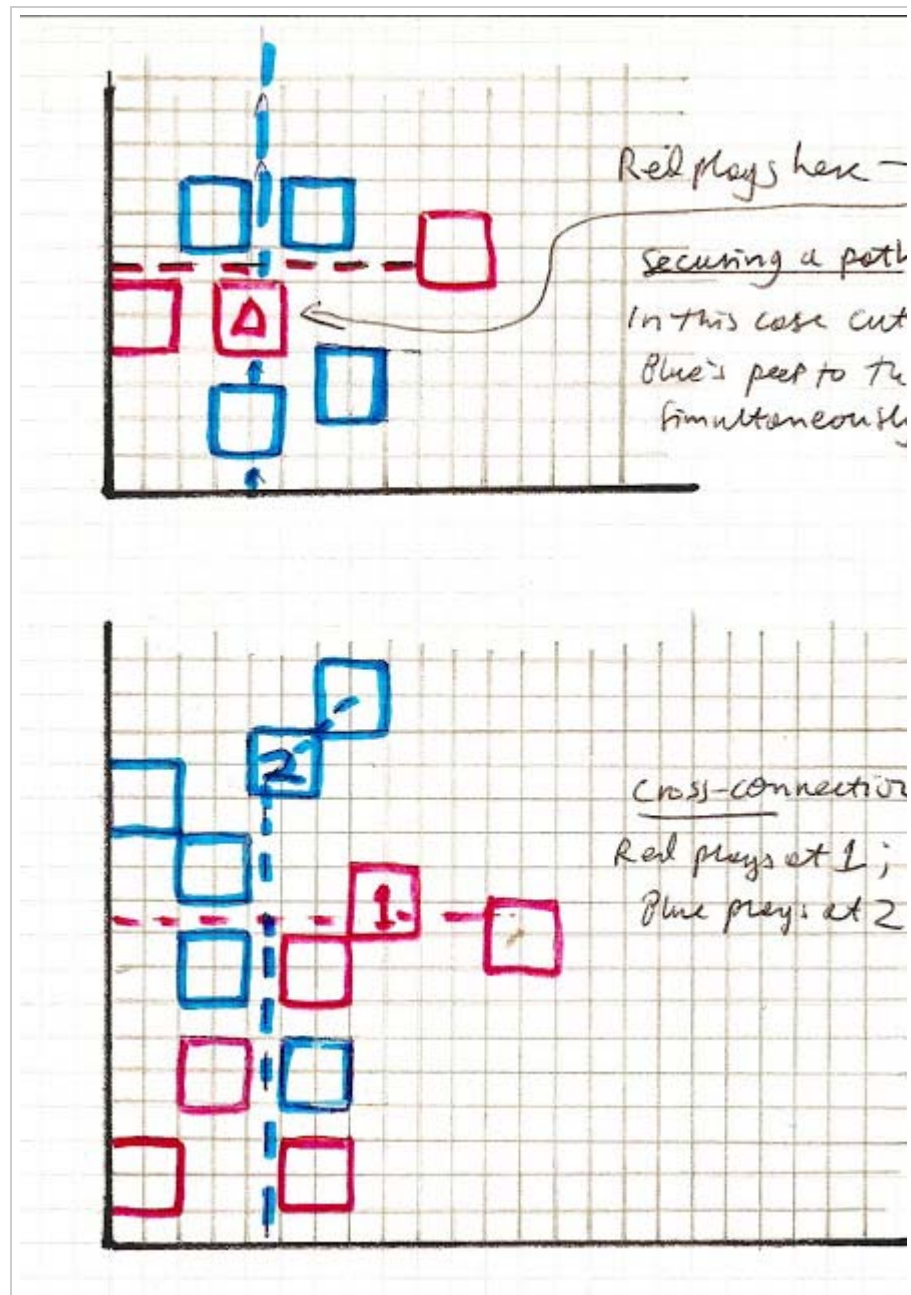 Red plays here —
Securing a path
In this case cut
Blue's peep to th
simultaneously
2
1
Cross-connection
Red plays at 1;
Blue plays at 2